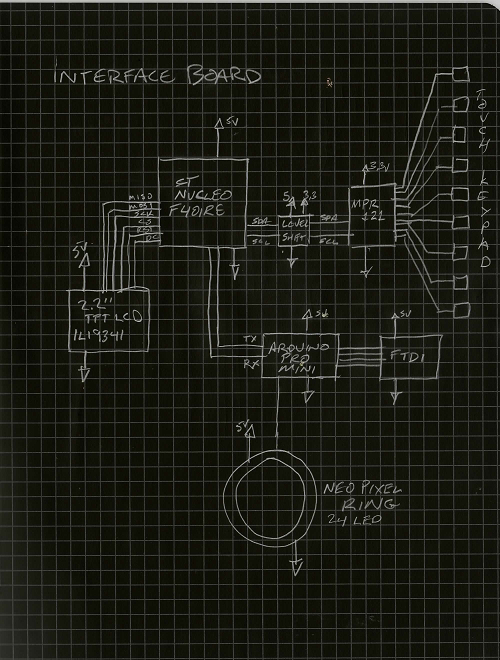 INTERFACE BOARD
5V
ST
NUCLEO
F401RE
MISO
MOSI
SCK
CS
RST
DC
5V
2.2"
TFT LCD
ILI9341
SDA
SCL
5
3.3
LEVEL
SHIFT
SDA
SCL
3.3V
MPR
121
TOUCH KEYPAD
TX
RX
5V
ARDUINO
PRO
MINI
5V
FTDI
5V
NEO PIXEL
RING
24 LED